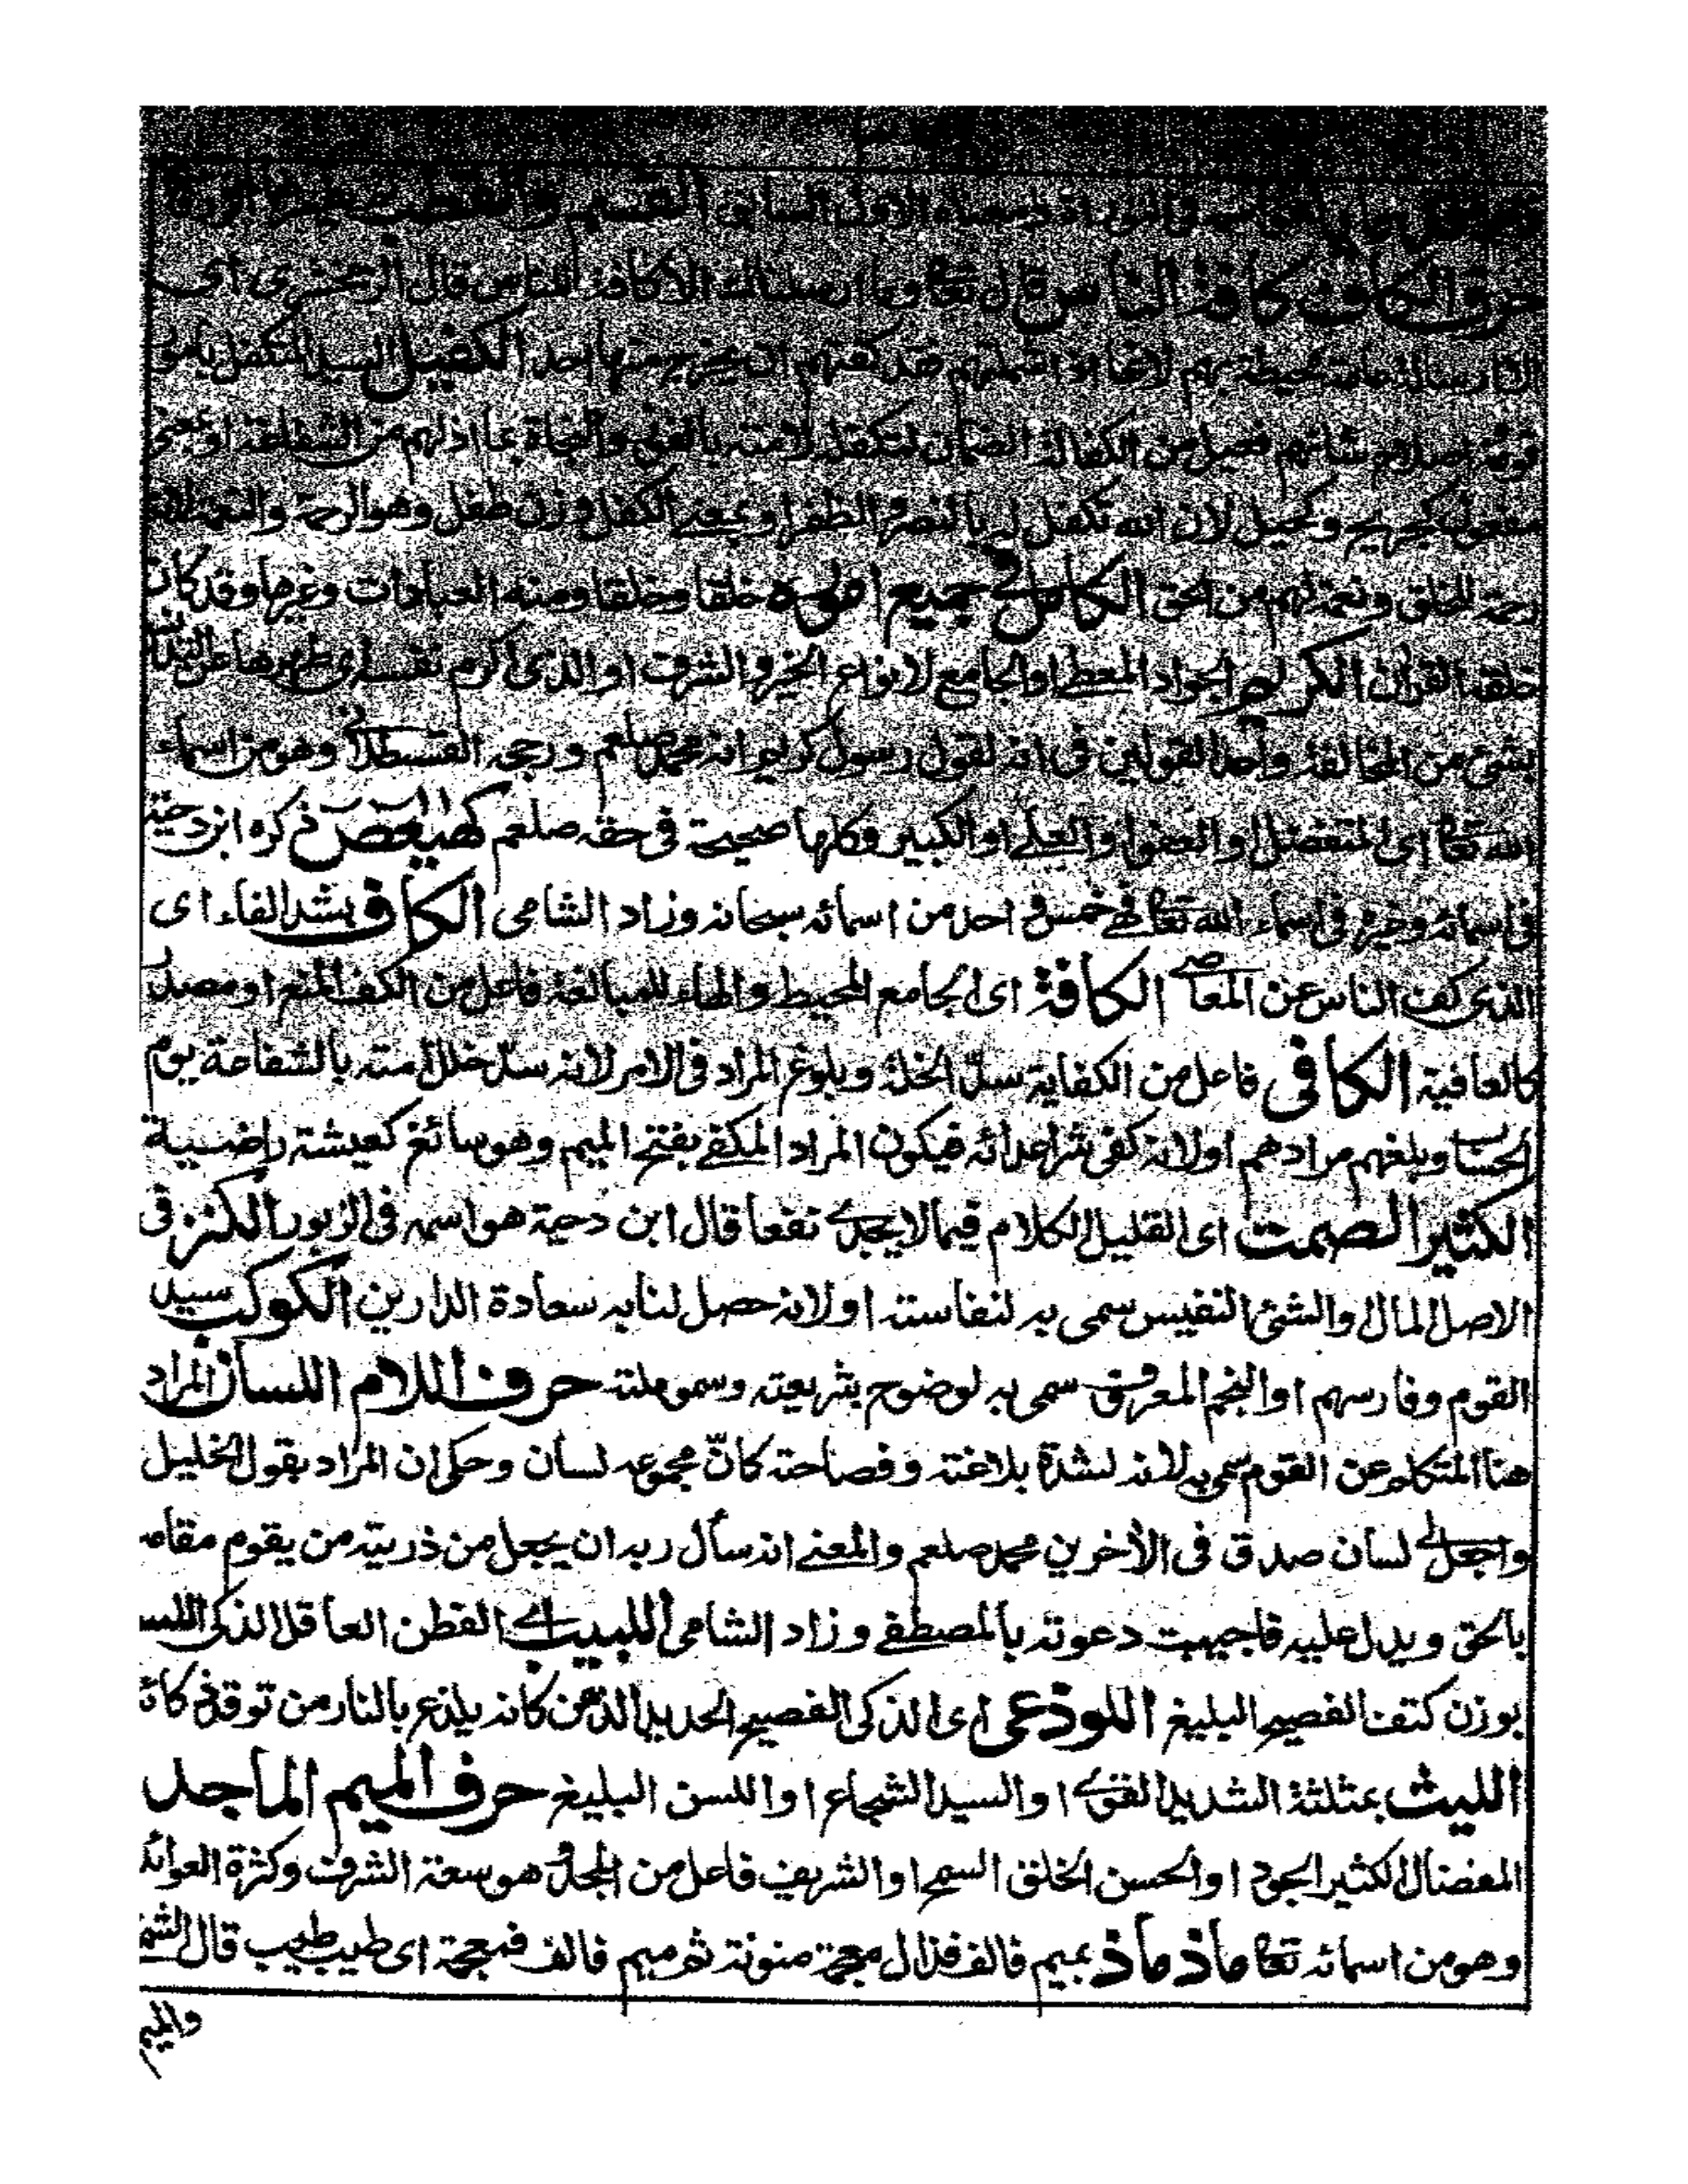 الاول السابق القسيم والقطب
حرف الكاف كافة الناس قال تعا وما ارسلناك الا كافة للناس قال الزمخشرى اى
الا رسالة عامة محيطة بهم لانها اذا شملتهم فقد كفتهم ان يخرج منها احد الكفيل السيد المتكفل بامور
قومه اصلاح شانهم فعيل من الكفالة الضمان لتكفله لامته بالفوز والنجاة بما اذلهم من الشفاعة او بمعنى
مفعول كجريح وكحيل لان الله تكفل له بالنصر والظفر او بمعنے الكفل وزن طفل وهو الرحمة والنعمة لانه
رحمة للخلق ونعمة لهم من الحق الكامل فى جميع اموره خلقا وخلقا ومنه العبادات وغيرها وقد كان
خلقه القران الكريم الجواد المعطے او الجامع لانواع الخير والشرف او الذى اكرم نفسه اى طهرها عن التدنس
بشئ من المخالفة واحد القولين فى انه لقول رسول كريم انه محمد صلعم ورجحه القسطلانى وهو من اسماء
الله تعا اى المتفضل او العفو او العلے او الكبير وكلها صحيحة فى حقه صلعم كهيعص ذكره ابن دحية
فى اسمائه وغيره فى اسماء الله تعا فهے خمس فى احد من اسمائه سبحانه وزاد الشامى الكاف بشد الفاء اى
الذى كف الناس عن المعاصے الكافة اى الجامع المحيط والهاء للمبالغة فاعل من الكف المنع او مصدر
كالعافية الكافى فاعل من الكفاية سد الخلة وبلوغ المراد فى الامر لانه سد خلل امته بالشفاعة يوم
الحساب وبلغهم مرادهم او لانه كفى شر اعدائه فيكون المراد المكفے بفتح الميم وهو سائغ كعيشة راضية
الكثير الصمت اى القليل الكلام فيما لا يجدے نفعا قال ابن دحية هو اسمه فى الزبور الكنز فى
الاصل المال والشئ النفيس سمى به لنفاسته او لانه حصل لنا به سعادة الدارين الكوكب سيد
القوم وفارسهم او النجم المعروف سمى به لوضوح شريعته وسمو ملته حرف اللام اللسان المراد
هنا المتكلم عن القوم سمى به لانه لشدة بلاغته وفصاحته كانّ مجموعه لسان وحكى ان المراد بقول الخليل
واجعل لے لسان صدق فى الأخرين محمد صلعم والمعنے انه سأل ربه ان يجعل من ذريته من يقوم مقامه
بالحق ويدل عليه فاجيبت دعوته بالمصطفے وزاد الشامى اللبيب اے الفطن العاقل الذكى اللسن
بوزن كتف الفصيح البليغ اللوذعى اى الذكى الفصيح الحديد الذهن كانه يلذع بالنار من توقد ذكائه
الليث بمثلثة الشديد القوے او السيد الشجاع او اللسن البليغ حرف الميم الماجد
المفضال الكثير الجود او الحسن الخلق السمح او الشريف فاعل من المجد وهو سعة الشرف وكثرة العوائد
وهو من اسمائه تعا ماذ ماذ بميم فالف فذال معجمة منونة ثم ميم فالف فمعجمة اى طيب طيب قال الشمنى
والميم